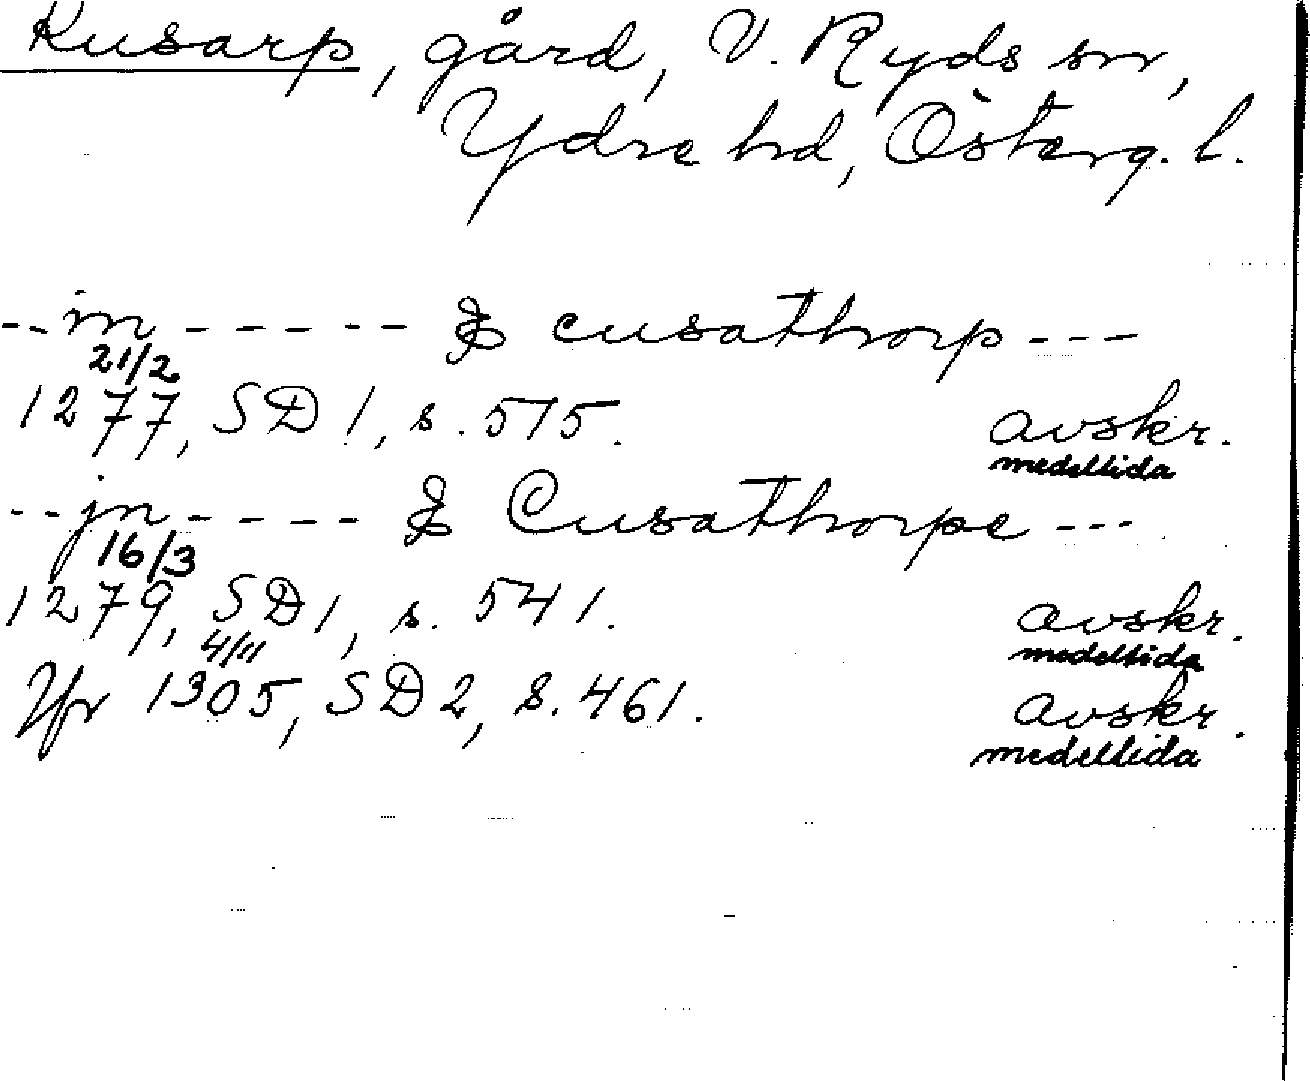 Kusarp, gård, V. Ryds sn,
Ydre hd, Österg. l.
-- in ------ & cusathorp ---
21/2
1277, SD 1, s. 515. avskr.
medeltida
-- jn ----- & Cusathorpe ---
16/3
1279, SD 1, s. 541. avskr.
medeltida
4/11
Jfr 1305, SD 2, s. 461. avskr.
medeltida